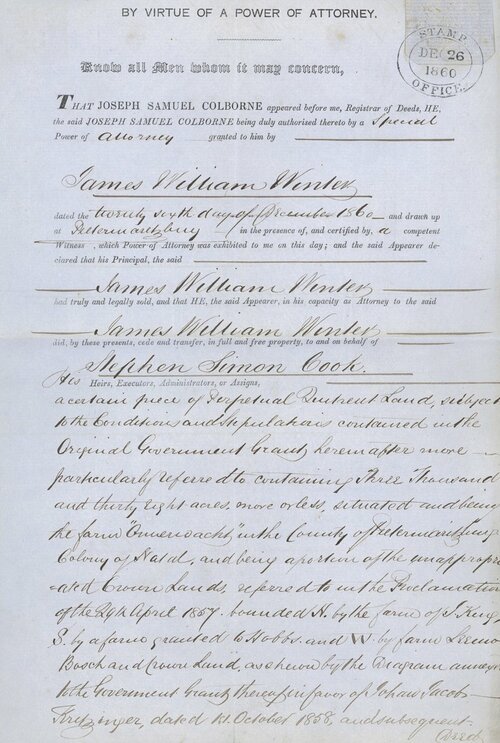 BY VIRTUE OF A POWER OF ATTORNEY.
STAMP
DEC 26
1860
OFFICE.
Know all Men whom it may concern,
THAT JOSEPH SAMUEL COLBORNE appeared before me, Registrar of Deeds, HE,
the said JOSEPH SAMUEL COLBORNE being duly authorised thereto by a Special
Power of Attorney granted to him by
James William Winter
dated the twenty sixth day of December 1860 and drawn up
at Pietermaritzburg in the presence of, and certified by, a competent
Witness, which Power of Attorney was exhibited to me on this day; and the said Appearer de-
clared that his Principal, the said
James William Winter
had truly and legally sold, and that HE, the said Appearer, in his capacity as Attorney to the said
James William Winter
did, by these presents, cede and transfer, in full and free property, to and on behalf of
Stephen Simon Cook.
His Heirs, Executors, Administrators, or Assigns,
a certain piece of Perpetual Quitrent Land, subject
to the Conditions and Stipulations contained in the
Original Government Grant hereinafter more
particularly referred to containing Three Thousand
and thirty eight acres, more or less, situated and being
the farm "Onverwacht," in the County of Pietermaritzburg
Colony of Natal, and being a portion of the unappropri-
ated Crown Lands, referred to in the Proclamation
of the 29th April 1857. bounded N. by the farm of J. King,
S. by a farm granted to Hobbs. and W. by farm
Bosch and Crown Land, as shewn by the Diagram annexed
to the Government Grant thereof in favor of Johan Jacobs
Kritzinger, dated 1st October 1858, and subsequent